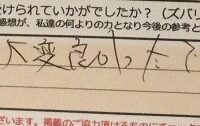 けられていかがでしたか？（ズバリ
感想が、私達の何よりの力となり今後の参考と
大変良かったで
ざいます。掲載のご協力頂けるものにチェ